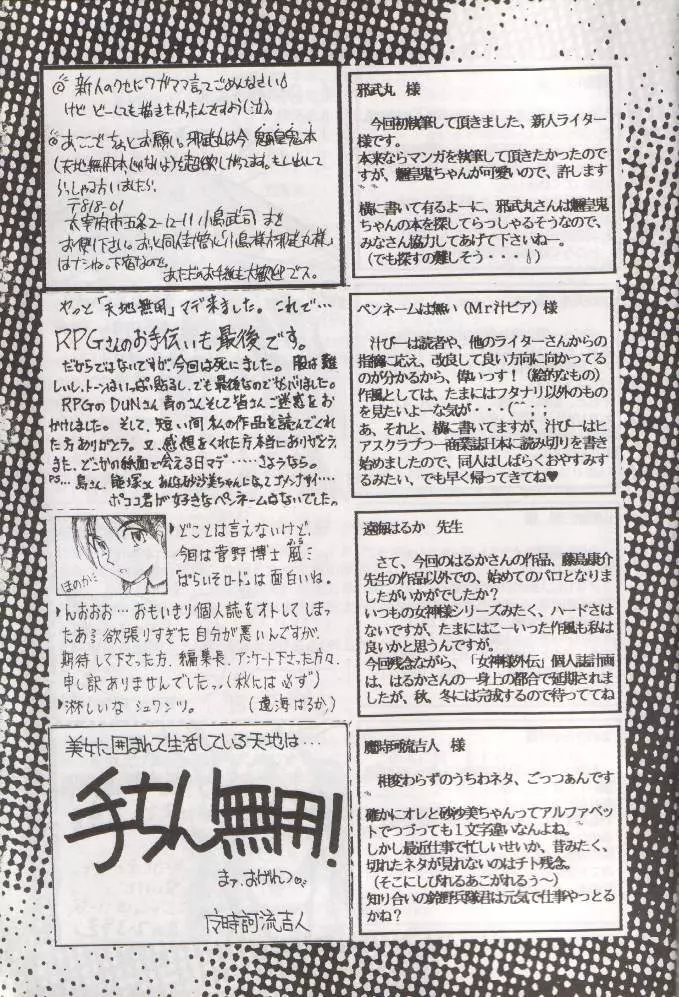 ◎新人のクセにワガママ言ってごめんなさい
けど どーしても描きたかったんですよう(泣)。
◎あ、ここでちょっとお願い。邪武丸は今 魎皇鬼本
(天地無用本じゃないよ)を超欲しがってます。もし出して
らっしゃる方いましたら
〒818-01
太宰府市五条2-12-11 小島武司 まで
お便り下さい。
はナシね。下宿なので。
やっと「天地無用」マデ来ました。これで…
RPGさんのお手伝いも最後です。
だからではないですが、今回は死にました。服は難
しいし、トーンはいっぱい貼るし、でも最後なのでがんばりました。
RPGのDUNさん 貴のさんそして皆さんご迷惑をお
かけしました。そして、短い間私の作品を読んでくれ
た方ありがとう。又、感想をくれた方本当にありがとう。
また、どこかの紙面で会える日マデ……さようなら。
ポココ君が好きなペンネームはないでした。
ほのか
どことは言えないけど、
今回は菅野博士 風ミ
「ぱらいそロード」は面白いね。
んおおお…おもいきり個人誌をオトしてしまっ
たある欲張りすぎた自分が悪いんですが、
期待して下さった方、編集長、アンケート下さった方々、
申し訳ありませんでしたっ。(秋には必ず)
淋しいな シュワンツ。 (遠海はるか)
美女に囲まれて生活している天地は…
手ちん無用!
まァ、おげれつ
魔時訶流吉人
邪武丸 様
今回初執筆して頂きました、新人ライター
様です。
本来ならマンガを執筆して頂きたかったので
すが、魎皇鬼ちゃんが可愛いので、許します
横に書いて有るよーに、邪武丸さんは魎皇鬼
ちゃんの本を探してらっしゃるそうなので、
みなさん協力してあげて下さいねー。
(でも探すの難しそう・・・)
ペンネームは無い(Mr汁ピア)様
汁ぴーは読者や、他のライターさんからの
指摘に応え、改良して良い方向に向かってる
のが分かるから、偉いっす!(絵的なもの)
作風としては、たまにはフタナリ以外のもの
を見たいよーな気が・・・(^^;;
あ、それと、横に書いてますが、汁ぴーはヒ
アスクラブつー商業誌日本に読み切りを書き
始めましたので、同人はしばらくおやすみす
るみたい、でも早く帰ってきてね♥
遠海はるか 先生
さて、今回のはるかさんの作品、藤島康介
先生の作品以外での、始めてのパロとなりま
したがいかがでしたか?
いつもの女神様シリーズみたく、ハードさは
ないですが、たまにはこーいった作風も私は
良いかと思うんですが。
今回残念ながら、「女神様外伝」個人誌計画
は、はるかさんの一身上の都合で延期されま
したが、秋、冬には完成するので待っててね
魔時訶流吉人 様
相変わらずのうちわネタ、ごっつぁんです
確かにオレと砂沙美ちゃんってアルファベッ
トでつづっても1文字違いなんよね。
しかし最近仕事で忙しいせいか、昔みたく、
切れたネタが見れないのはチト残念。
(そこにしびれるあこがれるぅ〜)
知り合いの鈴野兵隊君は元気で仕事やっとる
かね?